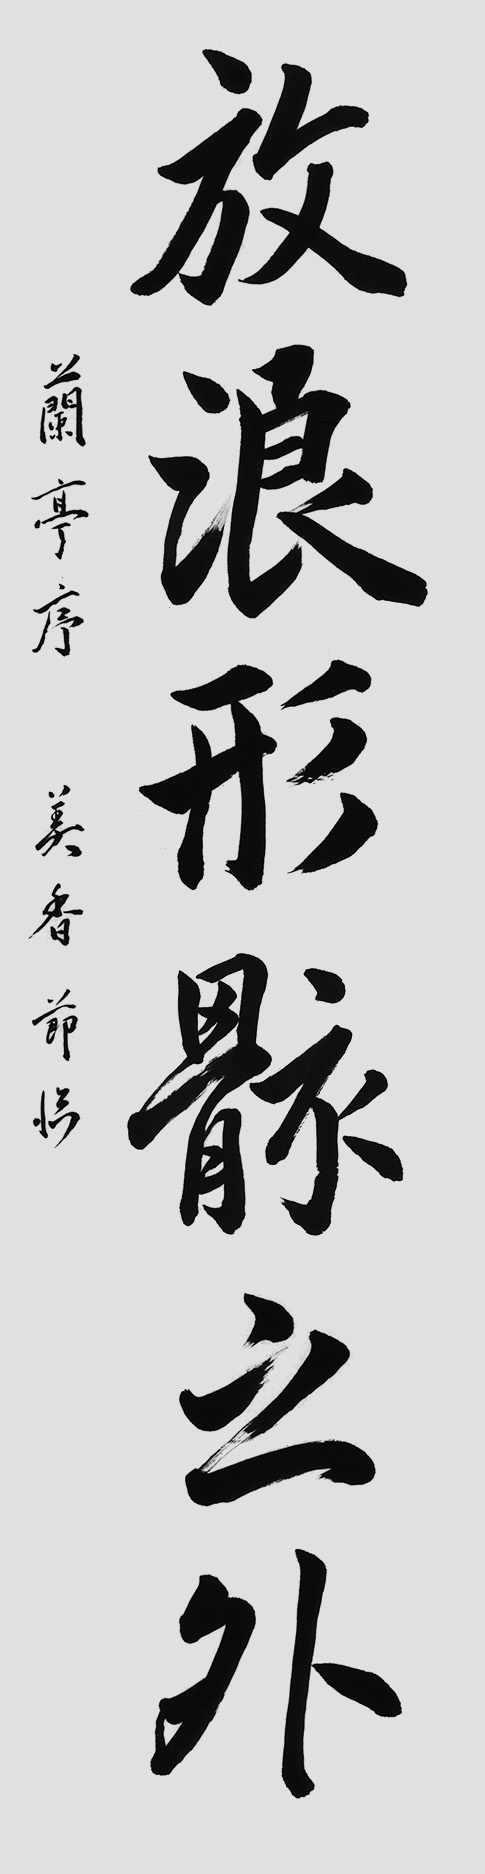 放浪形骸之外
蘭亭序 美香節臨